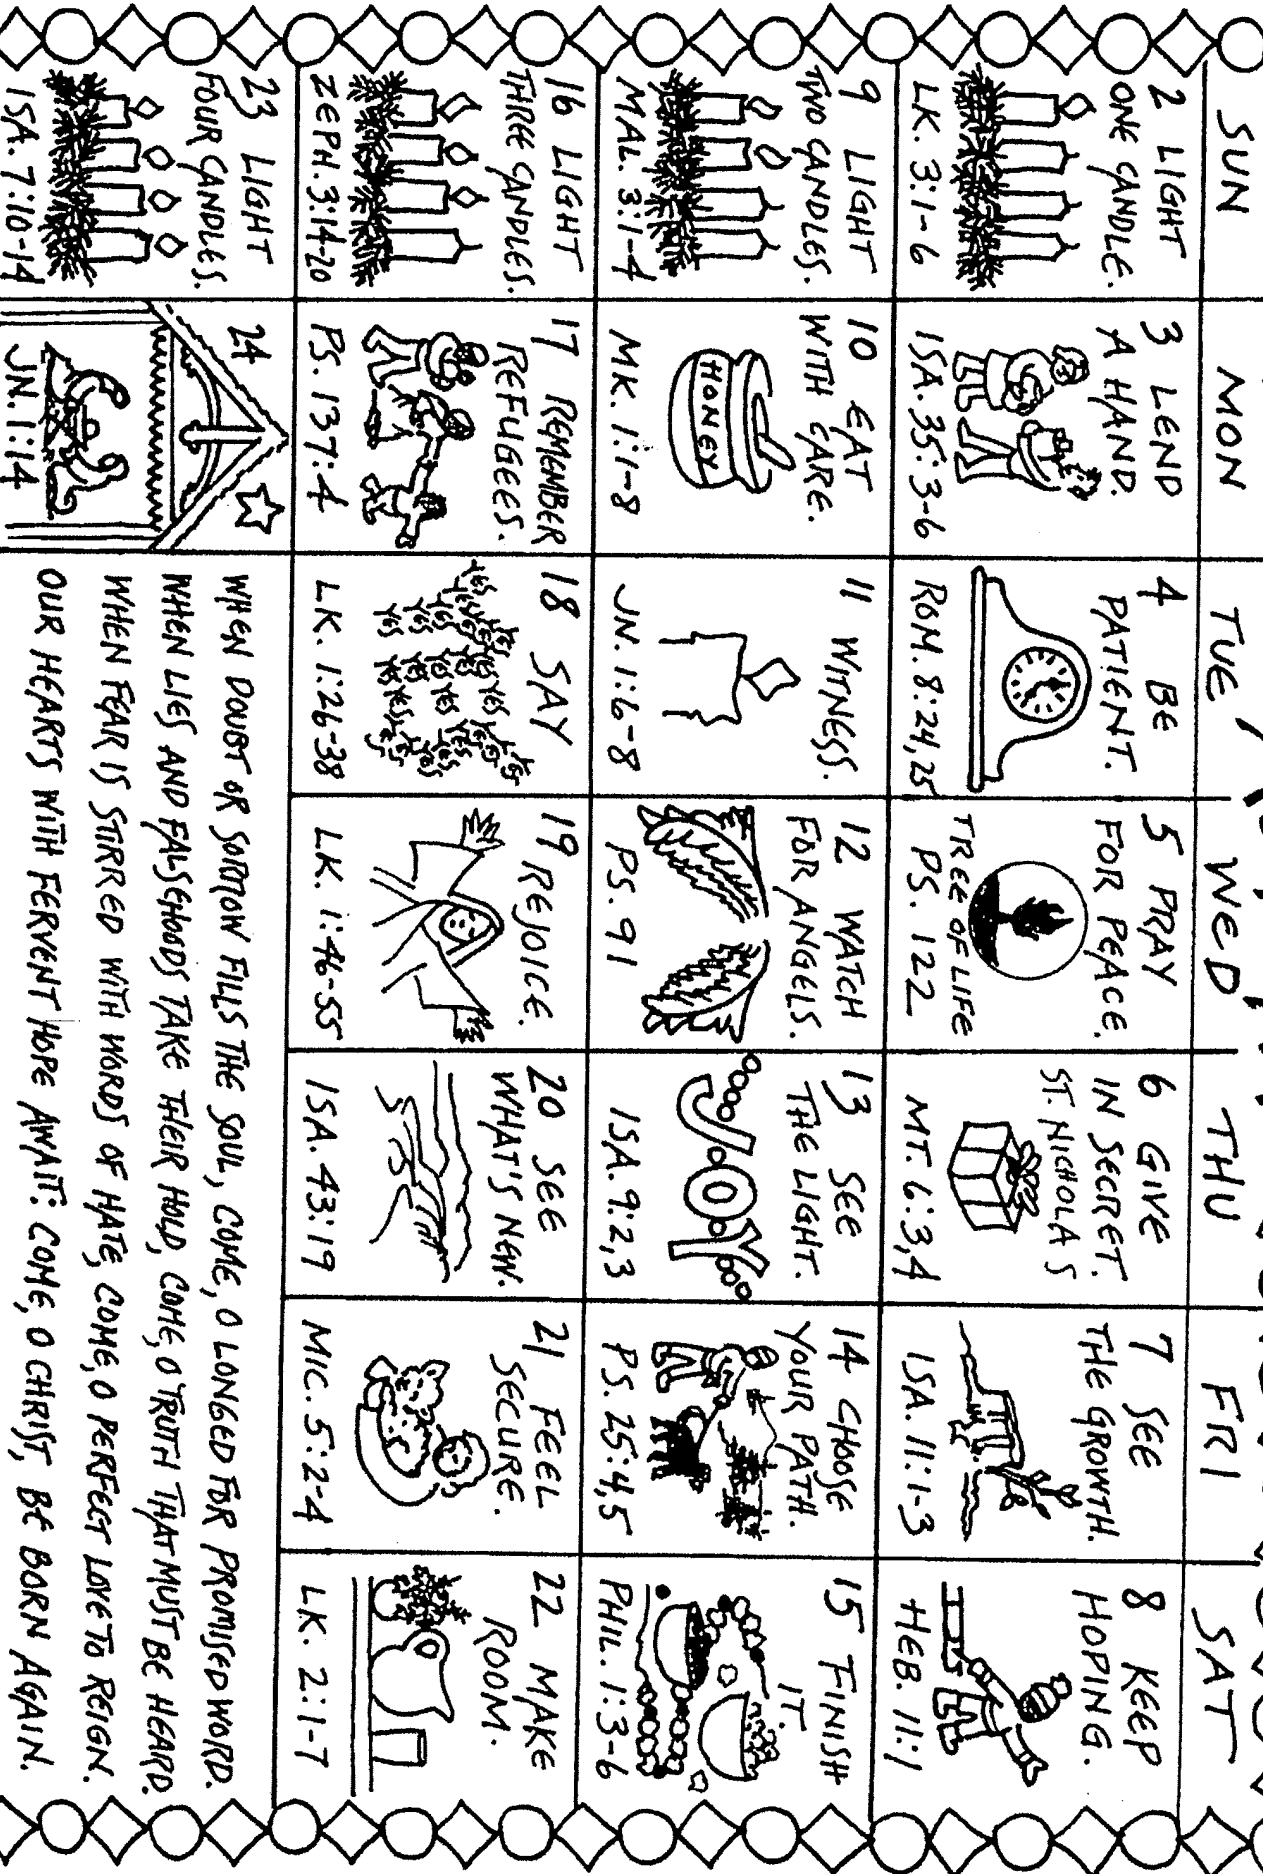 SUN
MON
TUE
WED
THU
FRI
SAT
2 LIGHT
ONE CANDLE.
LK. 3:1-6
3 LEND
A HAND.
ISA. 35:3-6
4 BE
PATIENT.
ROM. 8:24,25
5 PRAY
FOR PEACE.
TREE OF LIFE
PS. 122
6 GIVE
IN SECRET.
ST. NICHOLAS
MT. 6:3,4
7 SEE
THE GROWTH.
ISA. 11:1-3
8 KEEP
HOPING.
HEB. 11:1
9 LIGHT
TWO CANDLES.
MAL. 3:1-4
10 EAT
WITH CARE.
HONEY
MK. 1:1-8
11 WITNESS.
JN. 1:6-8
12 WATCH
FOR ANGELS.
PS. 91
13 SEE
THE LIGHT.
JOY
ISA. 9:2,3
14 CHOOSE
YOUR PATH.
PS. 25:4,5
15 FINISH
IT.
PHIL. 1:3-6
16 LIGHT
THREE CANDLES.
ZEPH. 3:14-20
17 REMEMBER
REFUGEES.
PS. 137:4
18 SAY
YES YES YES
YES YES YES
YES YES YES YES
YES YES YES YES
LK. 1:26-38
19 REJOICE.
LK. 1:46-55
20 SEE
WHAT'S NEW.
ISA. 43:19
21 FEEL
SECURE.
MIC. 5:2-4
22 MAKE
ROOM.
LK. 2:1-7
23 LIGHT
FOUR CANDLES.
ISA. 7:10-14
24
JN. 1:14
WHEN DOUBT OR SORROW FILLS THE SOUL, COME, O LONGED FOR PROMISED WORD.
WHEN LIES AND FALSEHOODS TAKE THEIR HOLD, COME, O TRUTH THAT MUST BE HEARD.
WHEN FEAR IS STIRRED WITH WORDS OF HATE, COME, O PERFECT LOVE TO REIGN.
OUR HEARTS WITH FERVENT HOPE AWAIT: COME, O CHRIST, BE BORN AGAIN.